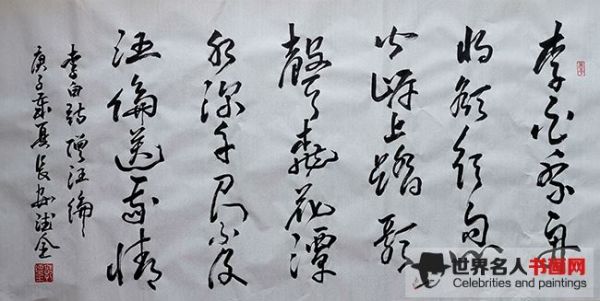 李白乘舟
将欲行忽
闻岸上踏歌
聲桃花潭
水深千尺不及
汪倫送我情
李白詩贈汪倫
庚子夏长安
世界名人书画网
Celebrities and paintings